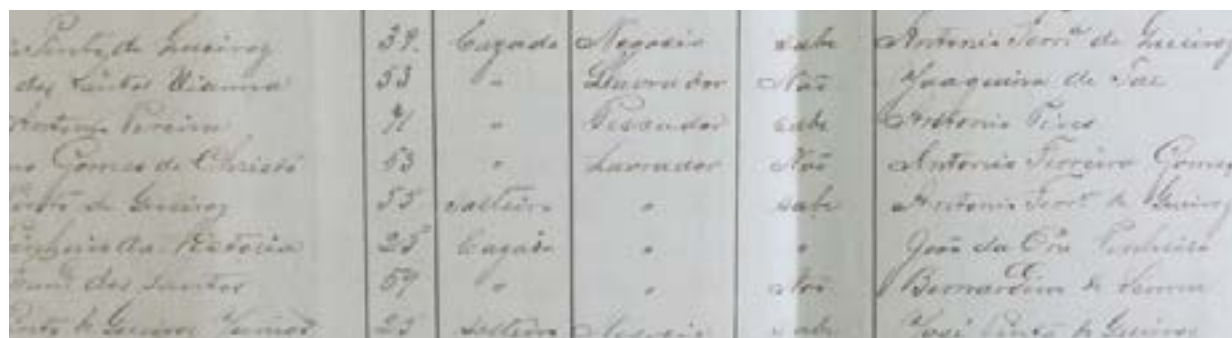 Pinto de Queiroz 39. Cazado Negocio sabe Antonio Ferrª de Queiroz
dos Santos Vianna 53 " Lavrador Não Joaquina de Tal
Antonio Pereira 71 " Pescador sabe Antonio Pires
Gomes de Christo 53 " Lavrador Não Antonio Ferreira Gomes
Pinto de Queiroz 55 solteiro " sabe Antonio Ferrª de Queiroz
da Victoria 25 Cazado " " João da Pinheiro
dos Santos 59 " " Não Bernardino de
Pinto de Queiroz Junior 25 solteiro Negocio sabe José Pinto de Queiroz